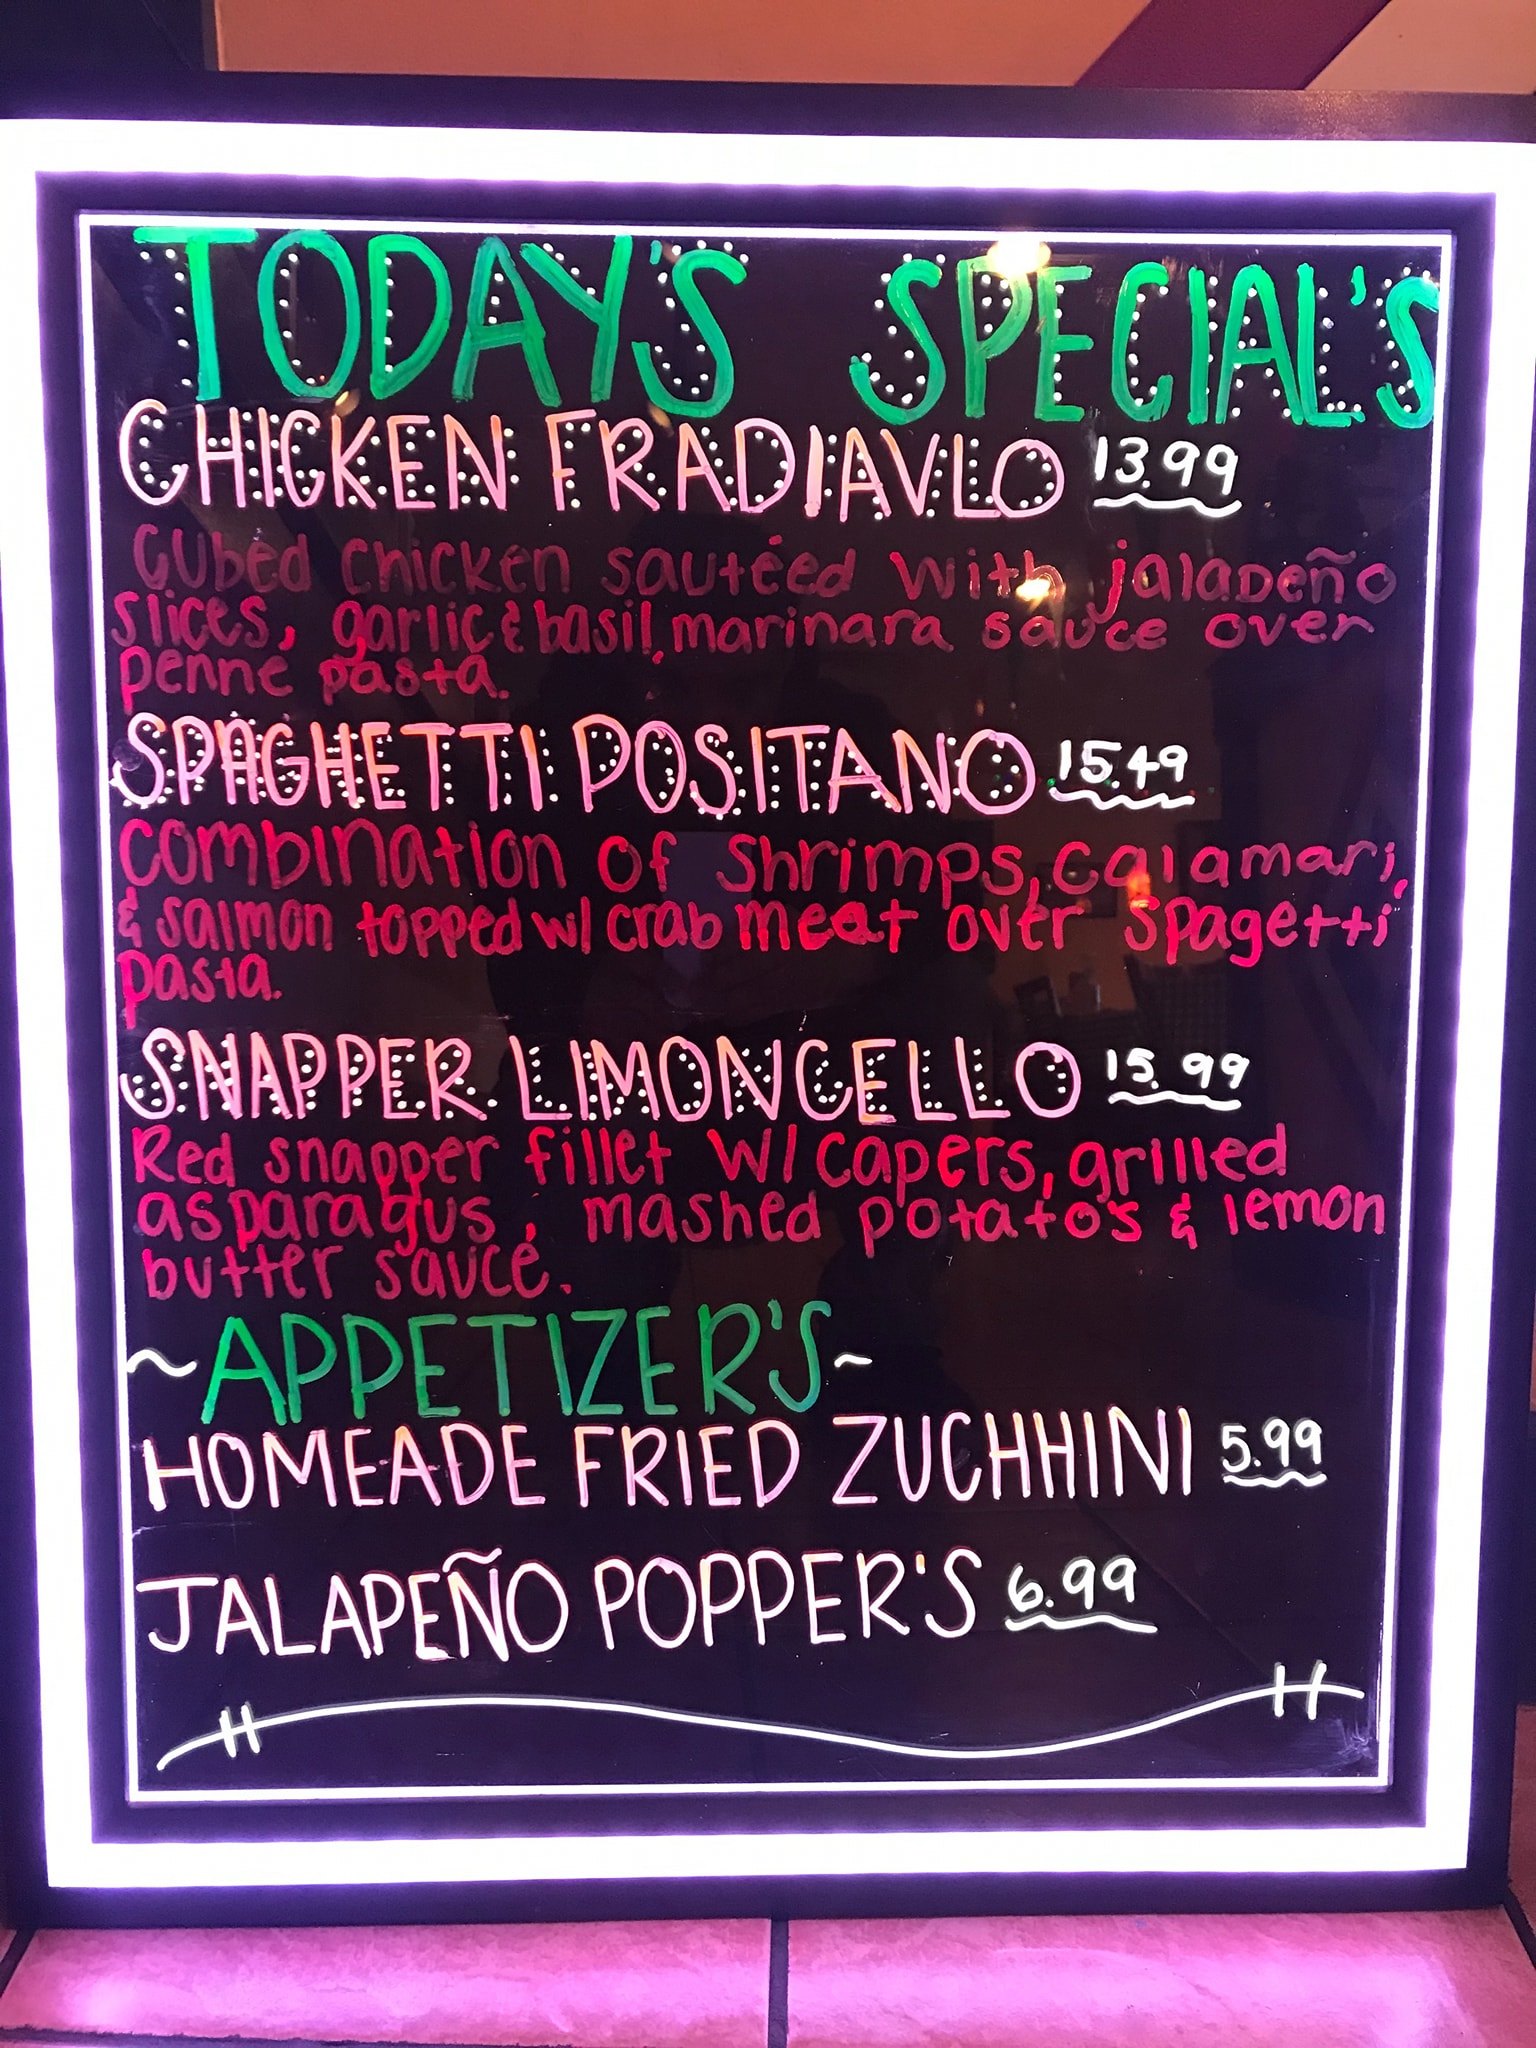 TODAY'S SPECIAL'S
CHICKEN FRADIAVLO 13.99
Cubed chicken sautéed with jalapeño
slices, garlic & basil, marinara sauce over
penne pasta.
SPAGHETTI POSITANO 15.49
Combination of shrimps, calamari,
& salmon topped w/ crab meat over spagetti
pasta.
SNAPPER LIMONCELLO 15.99
Red snapper fillet w/ capers, grilled
asparagus, mashed potato's & lemon
butter sauce.
~APPETIZER'S~
HOMEADE FRIED ZUCHHINI 5.99
JALAPEÑO POPPER'S 6.99